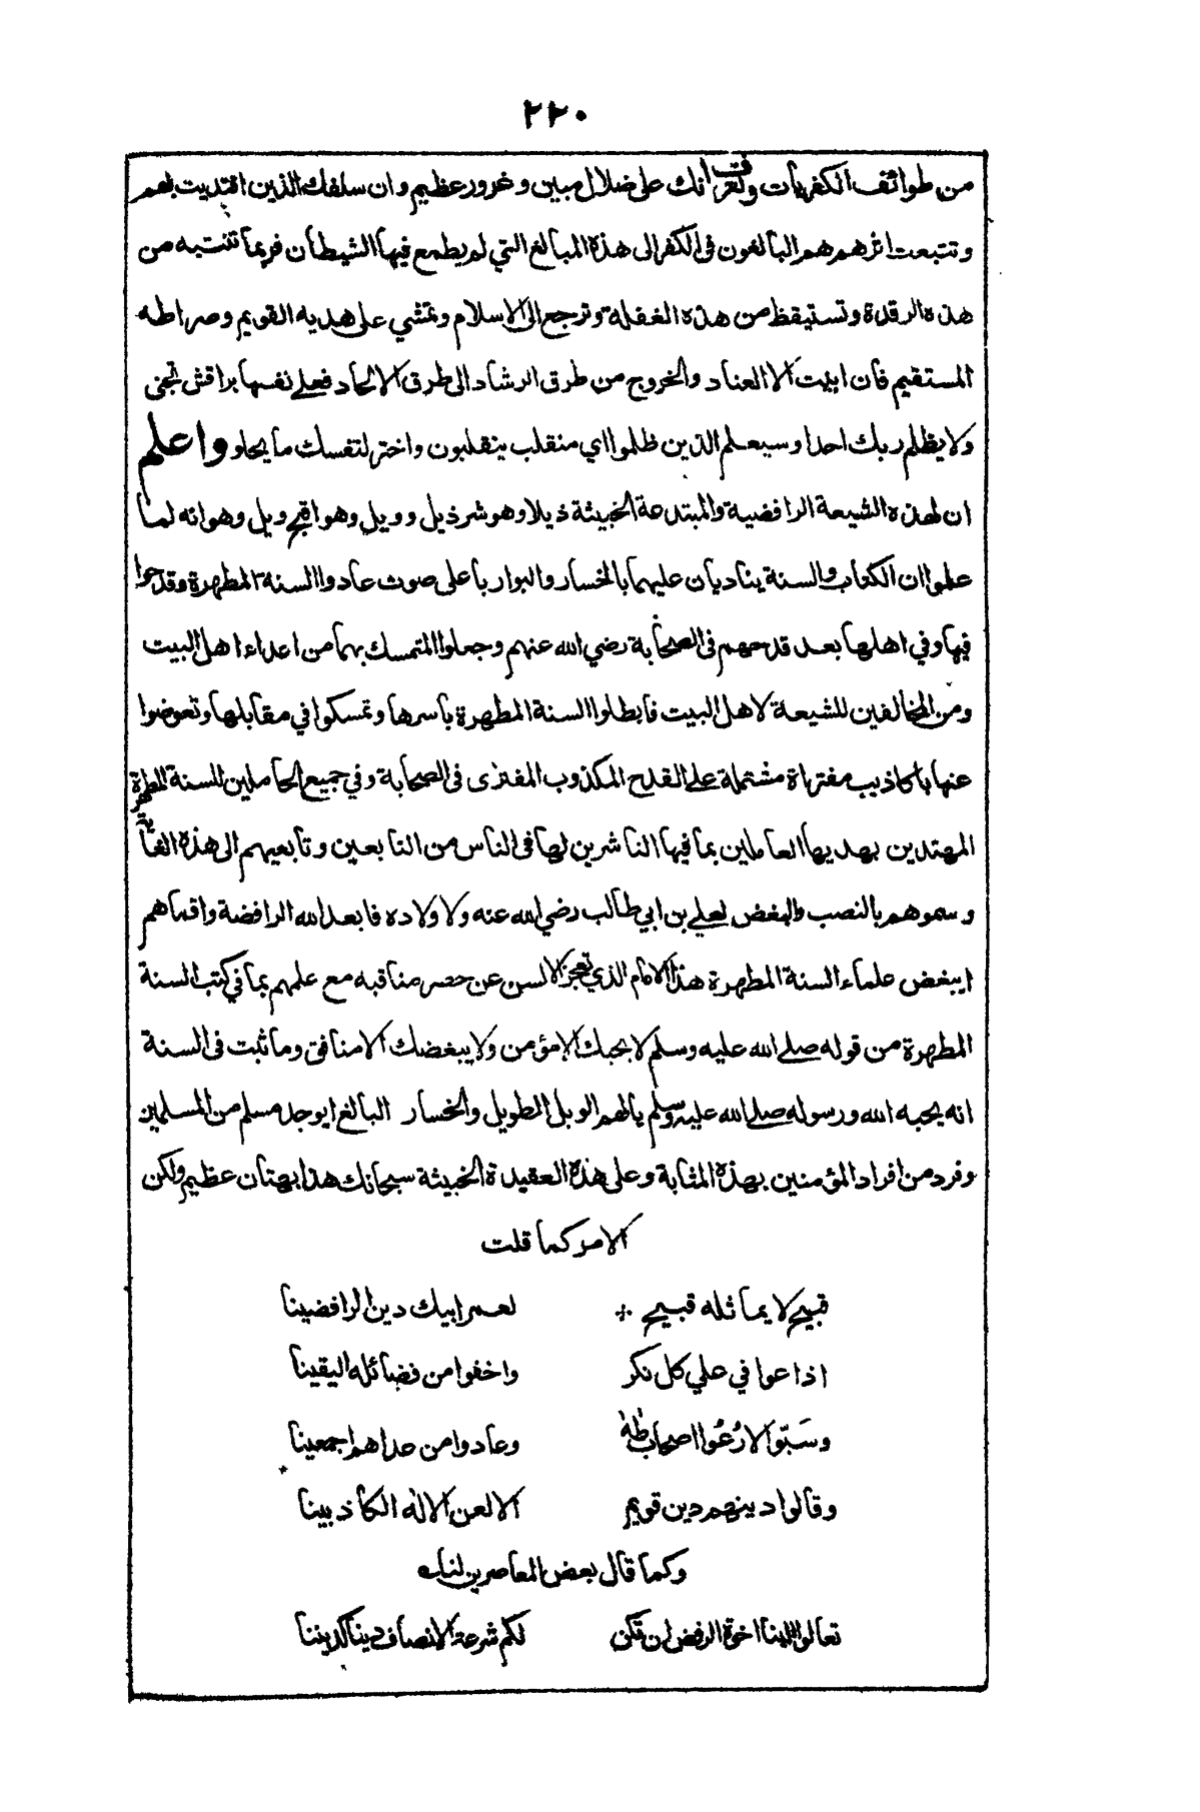 ٢٢٠
من طوائف الكفريات ولعرفت انك على ضلال مبين وغرور عظيم وان سلفك الذين اقتديت بهم
وتتبعت اثرهم هم البالغون فى الكفر الى هذه المبالغ التي لم يطمع فيها الشيطان فربما تنتبه من
هذه الرقدة وتستيقظ من هذه الغفلة وترجع الى الاسلام وتمشي على هديه القويم وصراطه
المستقيم فان ابيت الا العناد والخروج من طرق الرشاد الى طرق الالحاد فعلى نفسها براقش تجنى
ولا يظلم ربك احدا وسيعلم الذين ظلموا اي منقلب ينقلبون واختر لنفسك ما يحلو واعلم
ان لهذه الشيعة الرافضية والمبتدعة الخبيثة ذيلا وهو شر ذيل وويل وهو اقبح ويل وهو انه لما
علموا ان الكتاب والسنة يناديان عليهما بالخسار والبوار باعلى صوت عادوا السنة المطهرة وقدحوا
فيها وفي اهلها بعد قدحهم فى الصحابة رضي الله عنهم وجعلوا المتمسك بهما من اعداء اهل البيت
ومن المخالفين للشيعة لاهل البيت فابطلوا السنة المطهرة باسرها وتمسكوا في مقابلها وتعوضوا
عنها باكاذيب مفتراة مشتملة على القدح المكذوب المفترى فى الصحابة وفي جميع الحاملين للسنة المطهرة
المهتدين بهديها العاملين بما فيها الناشرين لها فى الناس من التابعين وتابعيهم الى هذه الغاية
وسموهم بالنصب والبغض لعلي بن ابي طالب رضي الله عنه ولاولاده فابعد الله الرافضة واقماهم
ايبغض علماء السنة المطهرة هذا الامام الذي تعجز الالسن عن حصر مناقبه مع علمهم بما في كتب السنة
المطهرة من قوله صلى الله عليه وسلم لا يحبك الا مؤمن ولا يبغضك الا منافق وما ثبت فى السنة
انه يحبه الله ورسوله صلى الله عليه وسلم يالهم الويل الطويل والخسار البالغ ايوجد مسلم من المسلمين
وفرد من افراد المؤمنين بهذه المثابة وعلى هذه العقيدة الخبيثة سبحانك هذا بهتان عظيم ولكن
الامر كما قلت
قبيح لا يماثله قبيح ÷ لعمر ابيك دين الرافضينا
اذاعوا في علي كل نكر واخفوا من فضائله اليقينا
وسَبّوا لا رُعُوا اصحاب طٰهٰ وعادوا من عداهم اجمعينا
وقالوا دينهم دين قويم الا لعن الاله الكاذبينا
وكما قال بعض المعاصرين لنا
تعالوا الينا اخوة الرفض ان تكن لكم شرعة الانصاف دينا كديننا